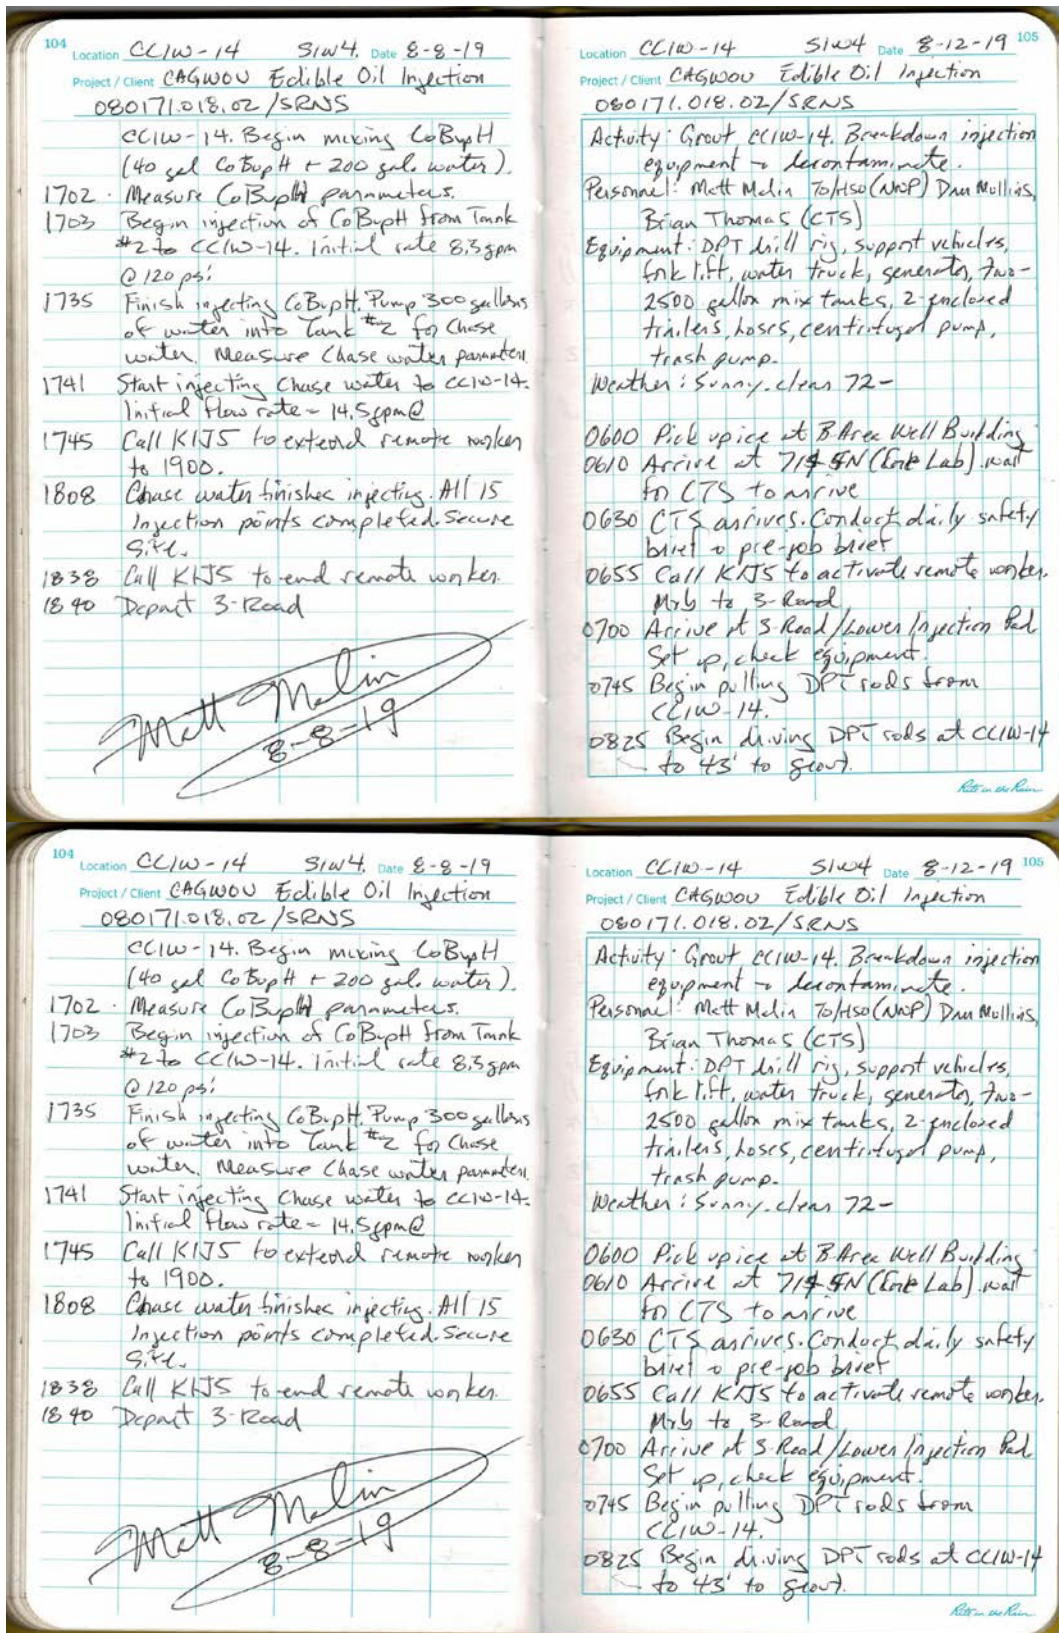 104
Location CCIW-14 SIW4. Date 8-8-19
Project / Client CAGWOU Edible Oil Injection
080171.018.02/SRNS
CCIW-14. Begin mixing CoBupH
(40 gal CoBupH + 200 gal. water).
1702 · Measure CoBupH parameters.
1703 Begin injection of CoBupH from Tank
#2 to CCIW-14. Initial rate 8.3 gpm
@ 120 psi
1735 Finish injecting CoBupH. Pump 300 gallons
of water into Tank #2 for Chase
water. Measure Chase water parameters.
1741 Start injecting Chase water to CCIW-14.
Initial flow rate = 14.5 gpm @
1745 Call KIJS to extend remote worker
to 1900.
1808 Chase water finishes injecting. All 15
Injection points completed. Secure
Site.
1838 Call KIJS to end remote worker.
1840 Depart 3-Road
Matt Malin
8-8-19
105
Location CCIW-14 SIW4 Date 8-12-19
Project / Client CAGWOU Edible Oil Injection
080171.018.02/SRNS
Activity: Grout CCIW-14. Breakdown injection
equipment & decontaminate.
Personnel: Matt Malin TO/HSO (NWP) Dan Mullins,
Brian Thomas (CTS)
Equipment: DPT drill rig, support vehicles,
fork lift, water truck, generator, two-
2500 gallon mix tanks, 2-enclosed
trailers, hoses, centrifugal pump,
trash pump.
Weather: Sunny. clear 72-
0600 Pick up ice at B-Area Well Building
0610 Arrive at 714-5N ( Lab). wait
for CTS to arrive
0630 CTS arrives. Conduct daily safety
brief & pre-job brief
0655 Call KIJS to activate remote worker.
Mob to 3-Road
0700 Arrive at 3-Road/Lower Injection Pad
Set up, check equipment.
0745 Begin pulling DPT rods from
CCIW-14.
0825 Begin driving DPT rods at CCIW-14
to 43' to grout.
Rite in the Rain
104
Location CCIW-14 SIW4. Date 8-8-19
Project / Client CAGWOU Edible Oil Injection
080171.018.02/SRNS
CCIW-14. Begin mixing CoBupH
(40 gal CoBupH + 200 gal. water).
1702 · Measure CoBupH parameters.
1703 Begin injection of CoBupH from Tank
#2 to CCIW-14. Initial rate 8.3 gpm
@ 120 psi
1735 Finish injecting CoBupH. Pump 300 gallons
of water into Tank #2 for Chase
water. Measure Chase water parameters.
1741 Start injecting Chase water to CCIW-14.
Initial flow rate = 14.5 gpm @
1745 Call KIJS to extend remote worker
to 1900.
1808 Chase water finishes injecting. All 15
Injection points completed. Secure
Site.
1838 Call KIJS to end remote worker.
1840 Depart 3-Road
Matt Malin
8-8-19
105
Location CCIW-14 SIW4 Date 8-12-19
Project / Client CAGWOU Edible Oil Injection
080171.018.02/SRNS
Activity: Grout CCIW-14. Breakdown injection
equipment & decontaminate.
Personnel: Matt Malin TO/HSO (NWP) Dan Mullins,
Brian Thomas (CTS)
Equipment: DPT drill rig, support vehicles,
fork lift, water truck, generator, two-
2500 gallon mix tanks, 2-enclosed
trailers, hoses, centrifugal pump,
trash pump.
Weather: Sunny. clear 72-
0600 Pick up ice at B-Area Well Building
0610 Arrive at 714-5N ( Lab). wait
for CTS to arrive
0630 CTS arrives. Conduct daily safety
brief & pre-job brief
0655 Call KIJS to activate remote worker.
Mob to 3-Road
0700 Arrive at 3-Road/Lower Injection Pad
Set up, check equipment.
0745 Begin pulling DPT rods from
CCIW-14.
0825 Begin driving DPT rods at CCIW-14
to 43' to grout.
Rite in the Rain